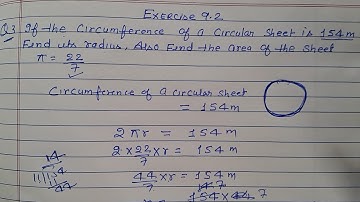 Exercise 9.2
Q3 If the Circumference of a Circular sheet is 154m
Find its radius, Also Find the area of the Sheet
π = 22/7
Circumference of a circular sheet
= 154m
2πr = 154m
2 × 22/7 × r = 154m
44/7 × r = 154m
154 × 7